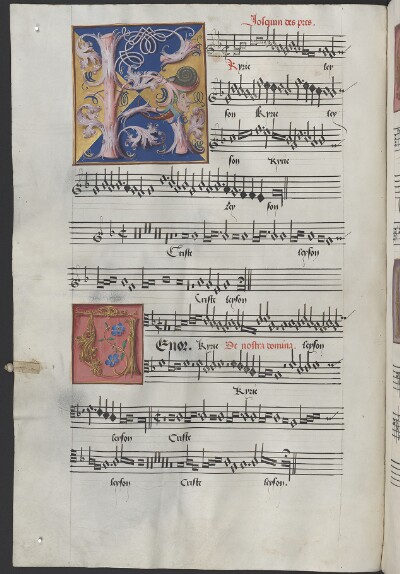 Josquin des pres.
Kyrie ley
son Kyrie ley
son Kyrie
ley son
Criste leyson
Criste leyson
Tenor. Kyrie De nostra domina. leyson
Kyrie
leyson Criste
leyson Criste leyson.